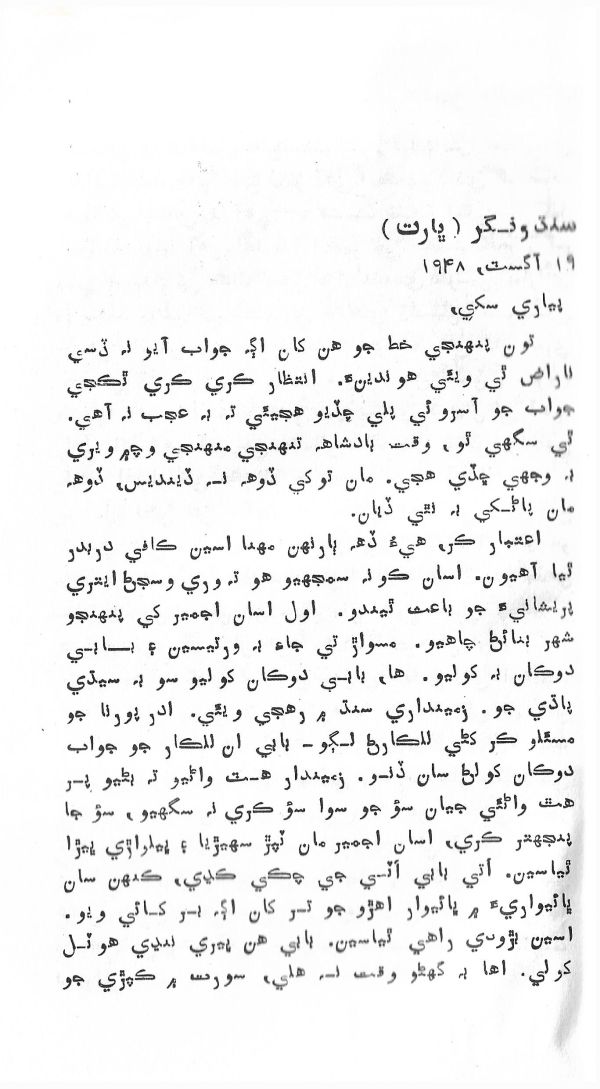 سنڌونگر (ڀارت)
۱۹ آگسٽ، ۱۹۴۸
پياري سکي،
تون پنهنجي خط جو هن کان اڳ جواب آيو نہ ڏسي
ناراض ٿي ويئي هوندينءَ. انتظار ڪري ڪري ٿڪجي
جواب جو آسرو ئي پلي ڇڏيو هجيئي تہ بہ عجب نہ آهي.
ٿي سگهي ٿو، وقت بادشاھہ تنهنجي منهنجي وچ ۾ ويري
بہ وجهي ڇڏي هجي. مان توکي ڏوھہ نہ ڏينديس، ڏوھہ
مان پاڻ کي بہ نٿي ڏيان.
اعتبار ڪر، هيءُ ڏھہ ٻارنهن مهنا اسين ڪافي دربدر
ٿيا آهيون. اسان ڪونہ سمجهيو هو تہ وري وسجڻ ايتري
پريشانيءَ جو باعث ٿيندو. اول اسان اجمير کي پنهنجو
شهر بنائڻ چاهيو. مسواڙ تي جاءِ بہ ورتيسين ۽ بابي
دوڪان بہ کوليو. ها، بابي دوڪان کوليو سو بہ سيڌي
پاڌي جو. زمينداري سنڌ ۾ رهجي ويئي. ادر پورنا جو
مسئلو ڪر کڻي للڪارڻ لڳو- بابي ان للڪار جو جواب
دوڪان کولڻ سان ڏنو. زميندار هٿ واڻيو تہ بڻيو پر
هٿ واڻئي جيان سؤ جو سوا سؤ ڪري نہ سگهيو، سؤ جا
پنجهتر ڪري، اسان اجمير مان ٽپڙ سهيڙيا ۽ ڀيلواڙي ڀيڙا
ٿياسين. اتي بابي اٽي جي چڪي ڪڍي، ڪنهن سان
ڀائيواريءَ ۾ ڀائيوار اهڙو جو تر کان اڳ بر کائي ويو.
اسين بڙودي راهي ٿياسين. بابي هن ڀيري ننڍي هوٽل
کولي. اها بہ گهڻو وقت نہ هلي، سورت ۾ ڪپڙي جو